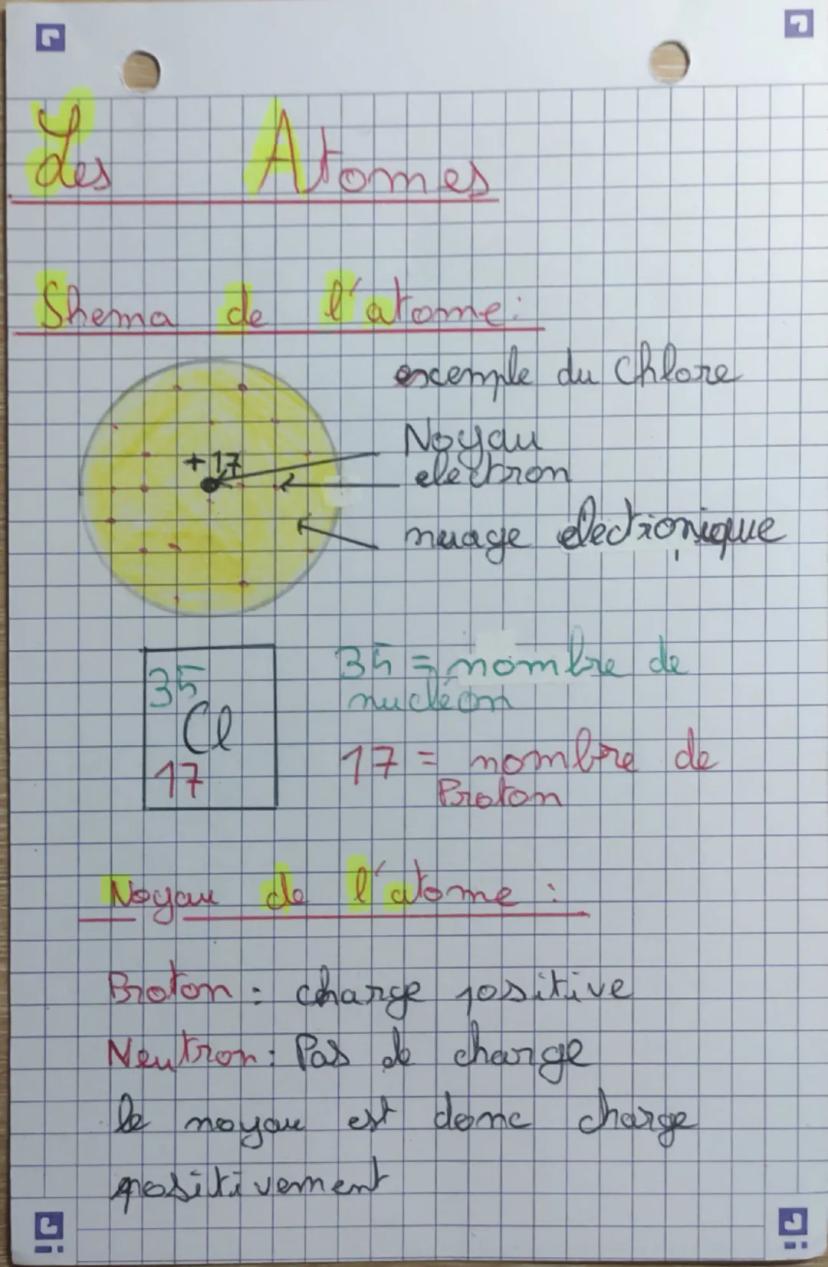 Les Atomes
Shema de l'atome:
exemple du Chlore
+17
Noyau
electron
nuage electronique
35
Cl
17
35 = nombre de
nucléon
17 = nombre de
Proton
Noyau de l'atome :
Proton : charge positive
Neutron : Pas de charge
le noyau est donc charge
positivement